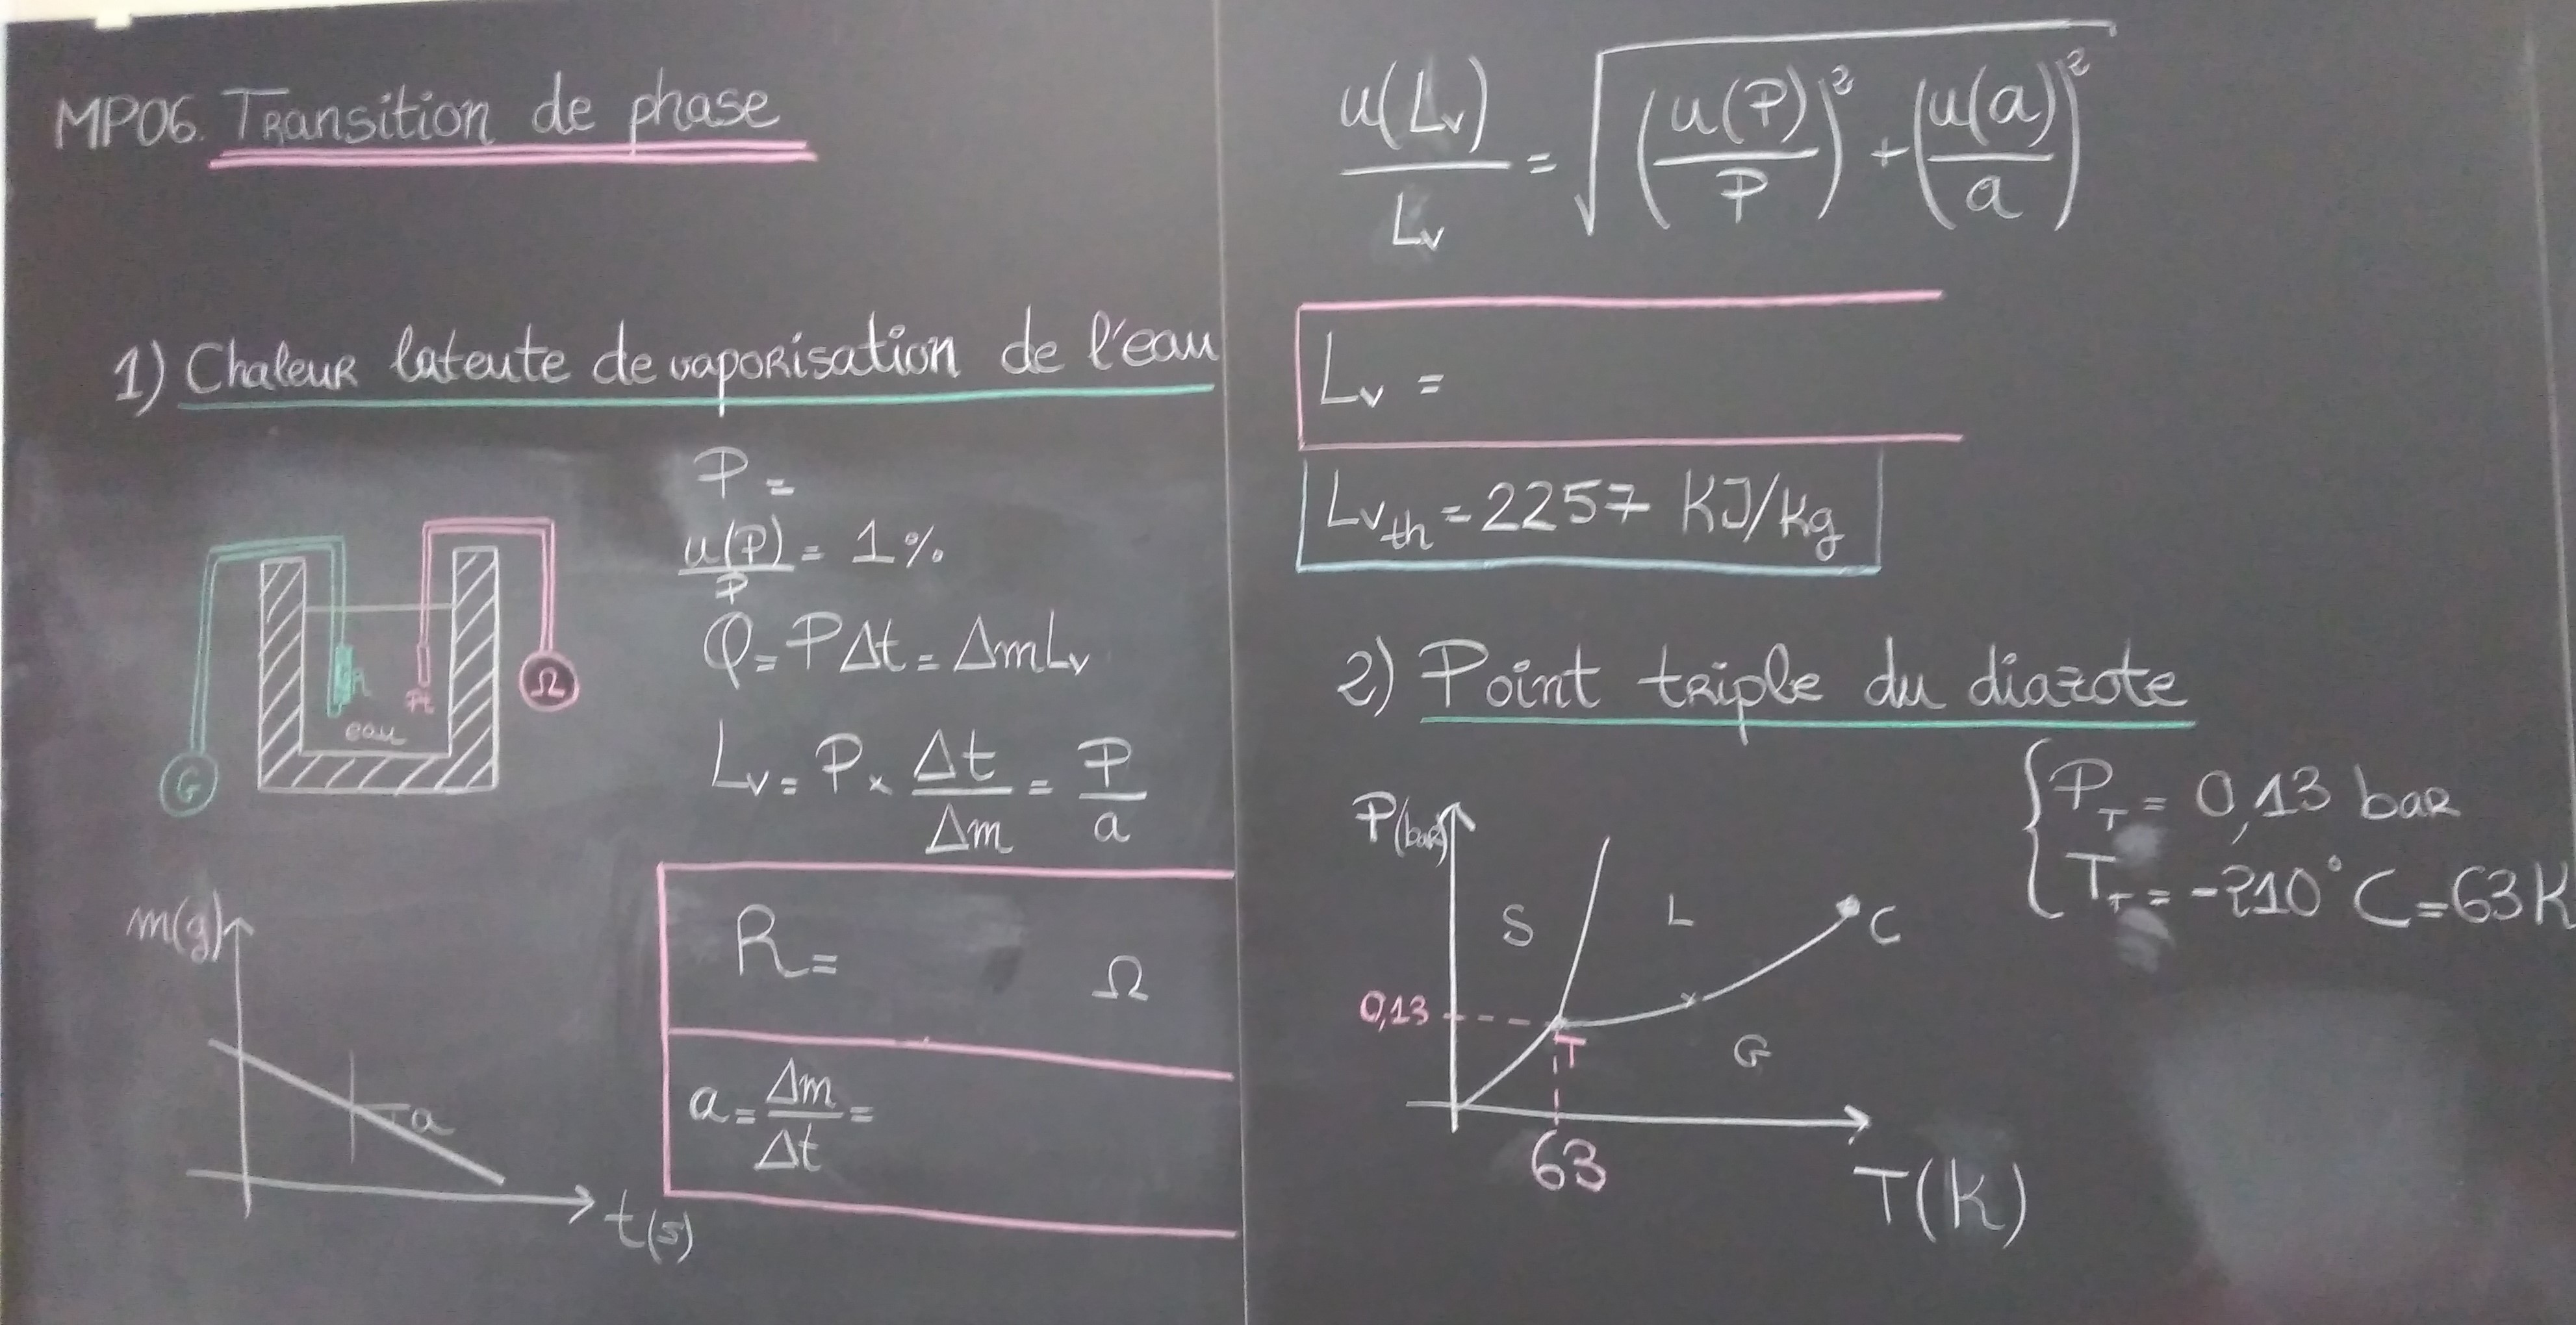 MP06. Transition de phase
1) Chaleur latente de vaporisation de l'eau
G
eau
Pt
Ω
P =
u(P)/P = 1%
Q = PΔt = ΔmLv
Lv = P × Δt/Δm = P/a
m(g)
a
t(s)
R = Ω
a = Δm/Δt =
u(Lv)/Lv = √((u(P)/P)² + (u(a)/a)²)
Lv =
Lv_th = 2257 KJ/Kg
2) Point triple du diazote
P_T = 0,13 bar
T_T = -210°C = 63K
P(bar)
S
L
C
0,13
T
G
63
T(K)